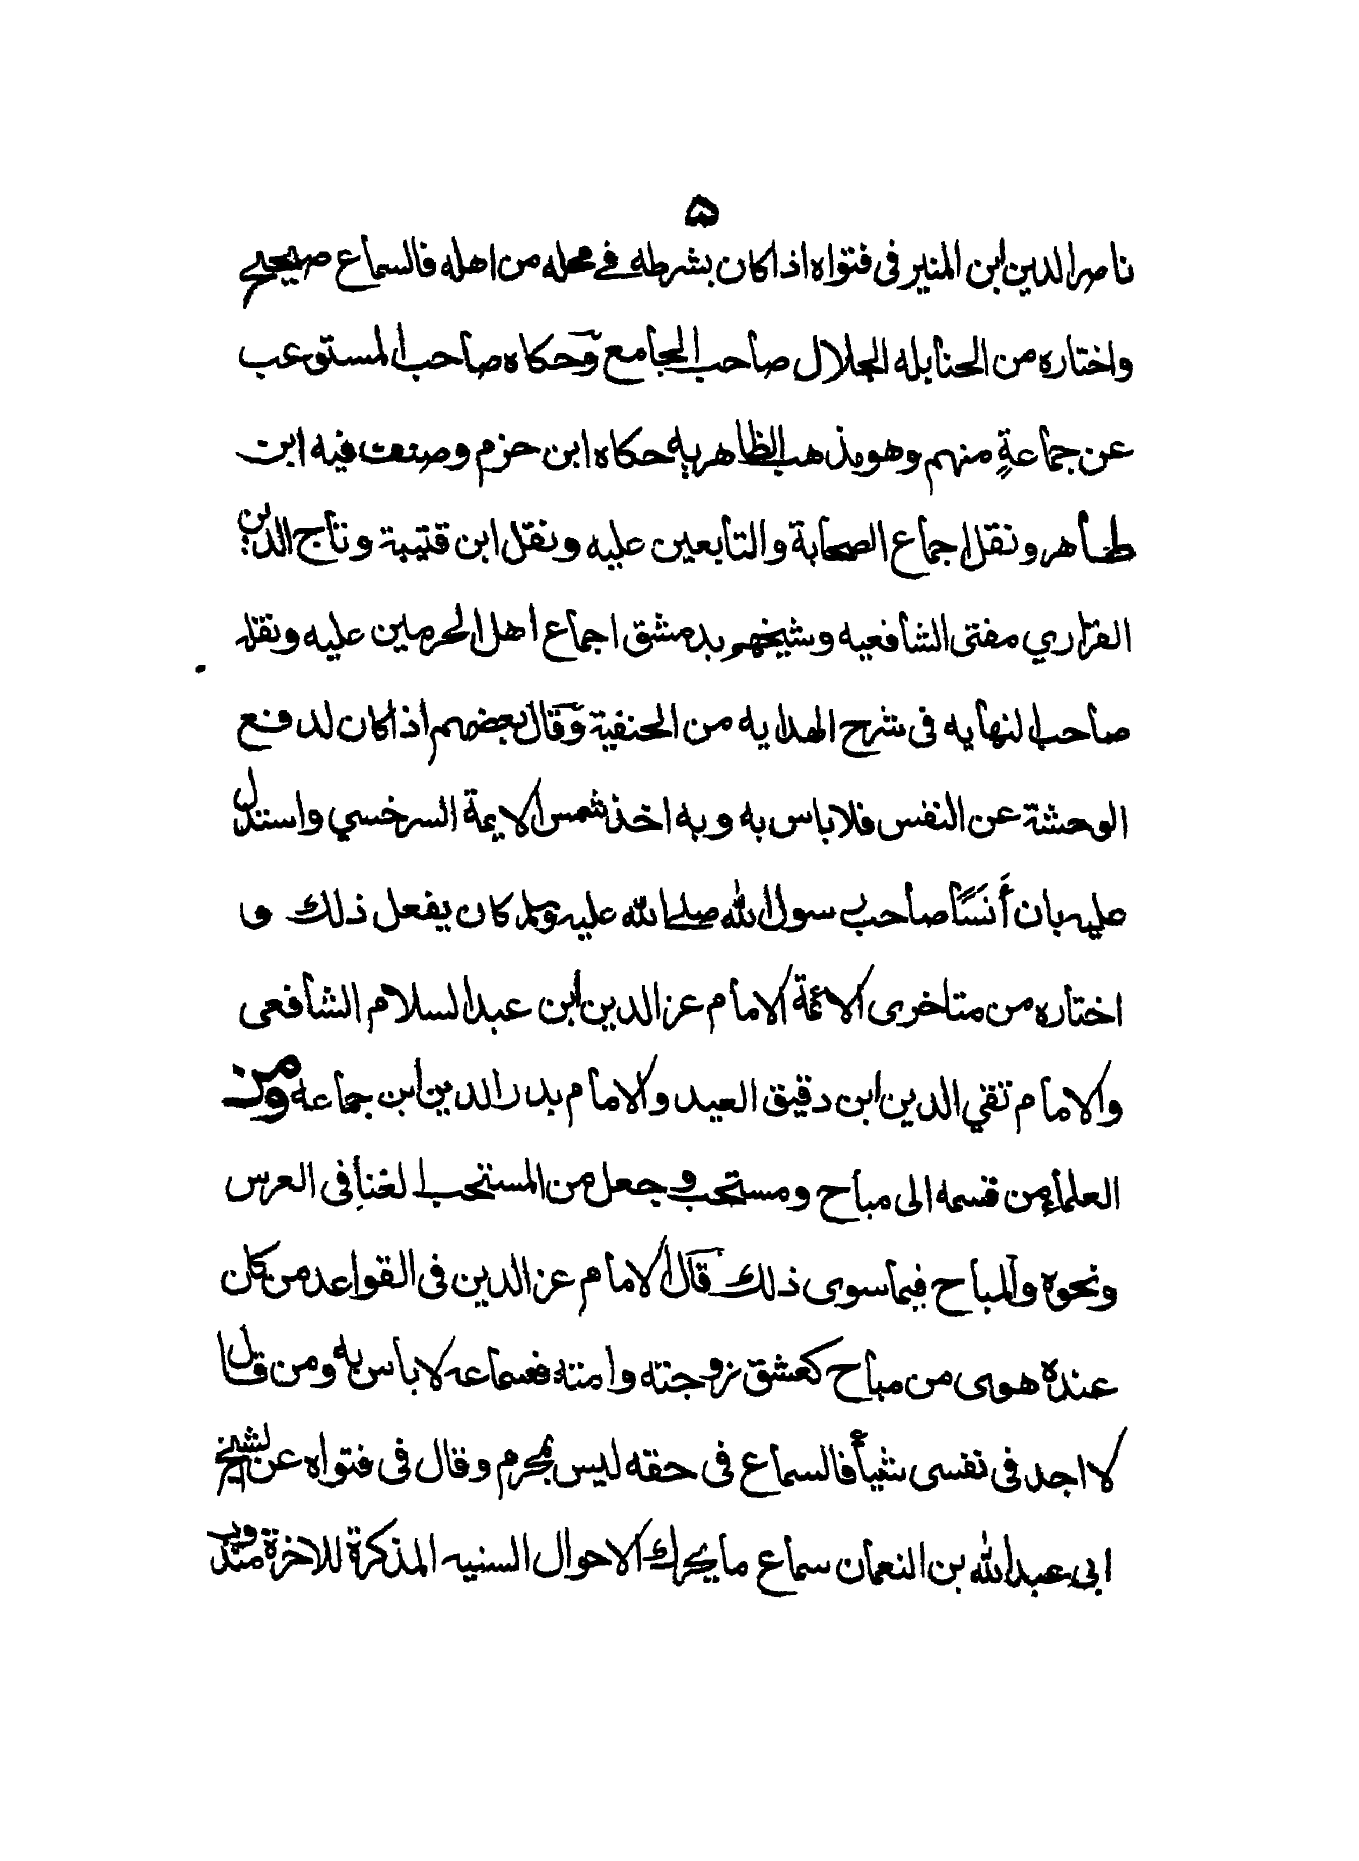 ۵
ناصر الدين ابن المنير فى فتواه اذا كان بشرطه فے محله من اهله فالسماع صيحيح
واختاره من الحنابله الجلال صاحب الجامع وحكاه صاحب المستوعب
عن جماعةٍ منهم وهو مذهب الظاهريه حكاه ابن حزم وصنف فيه ابن
طاهر ونقل اجماع الصحابة والتابعين عليه ونقل ابن قتيبة وتاج الدين
الفزاري مفتى الشافعيه وشيخهم بدمشق اجماع اهل الحرمين عليه ونقله
صاحب النهايه فى شرح الهدايه من الحنفية وقال بعضهم اذا كان لدفع
الوحشة عن النفس فلا باس به وبه اخذ شمس الايمة السرخسي واستدل
عليه بان أَنَسًا صاحب رسول الله صلے الله عليه وسلم كان يفعل ذلك و
اختاره من متاخرى الائمة الامام عز الدين ابن عبد السلام الشافعى
والامام تقي الدين ابن دقيق العيد والامام بدر الدين ابن جماعه ومن
العلماءِ من قسمه الى مباح ومستحب وجعل من المستحب الغناءِ فى العرس
ونحوه والمباح فيما سوى ذلك قال الامام عز الدين فى القواعد من كان
عنده هوى من مباح كعشق زوجته وامته فسماعه لا باس به ومن قال
لا اجد فى نفسى شيأً فالسماع فى حقه ليس بمحرم وقال فى فتواه عن الشيخ
ابى عبد الله بن النعمان سماع ما يحرك الاحوال السنيه المذكرة للاخرة مندوب